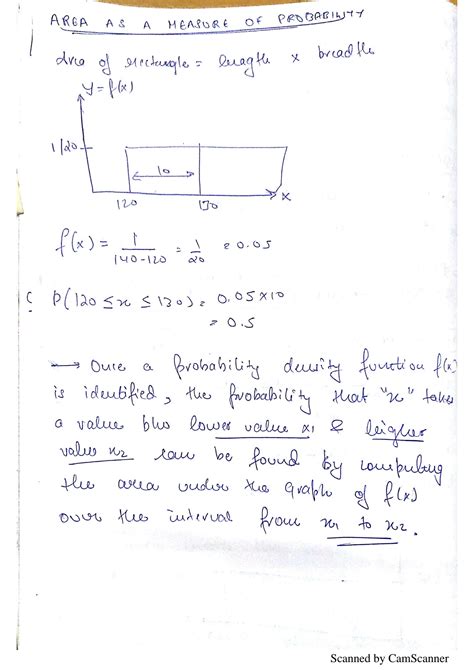 AREA AS A MEASURE OF PROBABILITY
Area of rectangle = length x breadth
y = f(x)
1/20
10
120 130 x
f(x) = 1/(140-120) = 1/20 = 0.05
P(120 ≤ x ≤ 130) = 0.05 x 10
= 0.5
→ Once a probability density function f(x)
is identified, the probability that "x" takes
a value b/w lower value x1 & higher
value x2 can be found by computing
the area under the graph of f(x)
over the interval from x1 to x2.
Scanned by CamScanner